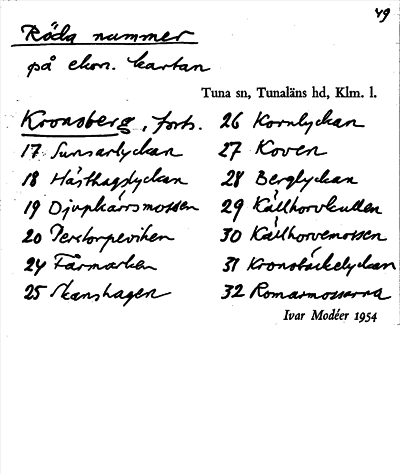 49
Röda nummer
på ekon. kartan
Tuna sn, Tunaläns hd, Klm. l.
Kronsberg, forts.
17 Sunsarlyckan
18 Hästhagslyckan
19 Djupkärrsmossen
20 Perstorpeviken
24 Fårmarken
25 Skanshagen
26 Kornlyckan
27 Koven
28 Berglyckan
29 Källhorvkullen
30 Källhorvemossen
31 Kronobäckelyckan
32 Romarmossarna
Ivar Modéer 1954